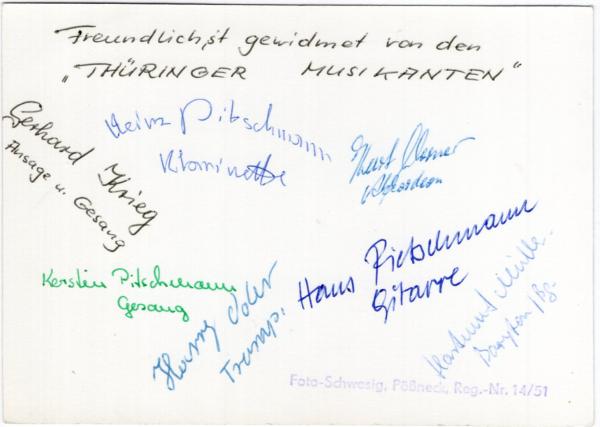 Freundlichst gewidmet von den
„THÜRINGER MUSIKANTEN"
Gerhard Krieg
Ansage u. Gesang
Heinz Pitschmann
Klarinette
Kurt
Akkordeon
Kerstin Pitschmann
Gesang
Harry Oder
Tromp.
Hans Pietschmann
Gitarre
Hartmut Müller
Baryton / Bz.
Foto-Schwesig, Pößneck, Reg.-Nr. 14/51